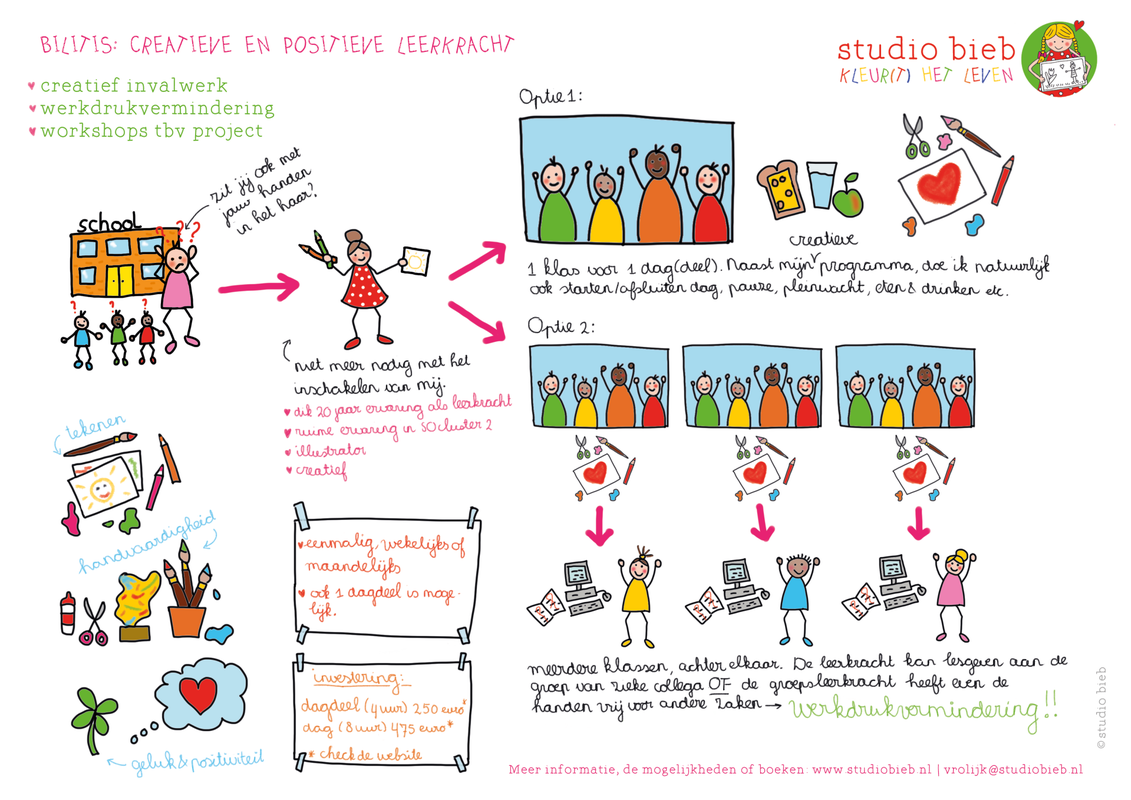 BILITIS: CREATIEVE EN POSITIEVE LEERKRACHT
studio bieb
KLEUR(T) HET LEVEN
creatief invalwerk
werkdrukvermindering
workshops tbv project
zit jij ook met
jouw handen
in het haar?
school
? ? ?
? ? ?
niet meer nodig met het
inschakelen van mij.
dik 20 jaar ervaring als leerkracht
ruime ervaring in SO cluster 2
illustrator
creatief
Optie 1:
creatieve
1 klas voor 1 dag(deel). Naast mijn programma, doe ik natuurlijk
ook starten/afsluiten dag, pauze, pleinwacht, eten & drinken etc.
Optie 2:
meerdere klassen, achter elkaar. De leerkracht kan lesgeven aan de
groep van zieke collega OF de groepsleerkracht heeft even de
handen vrij voor andere zaken → werkdrukvermindering!!
tekenen
handvaardigheid
geluk & positiviteit
eenmalig, wekelijks of
maandelijks
ook 1 dagdeel is moge-
lijk.
investering:
dagdeel (4 uur) 250 euro*
dag (8 uur) 475 euro*
* check de website
Meer informatie, de mogelijkheden of boeken: www.studiobieb.nl | vrolijk@studiobieb.nl
© studio bieb